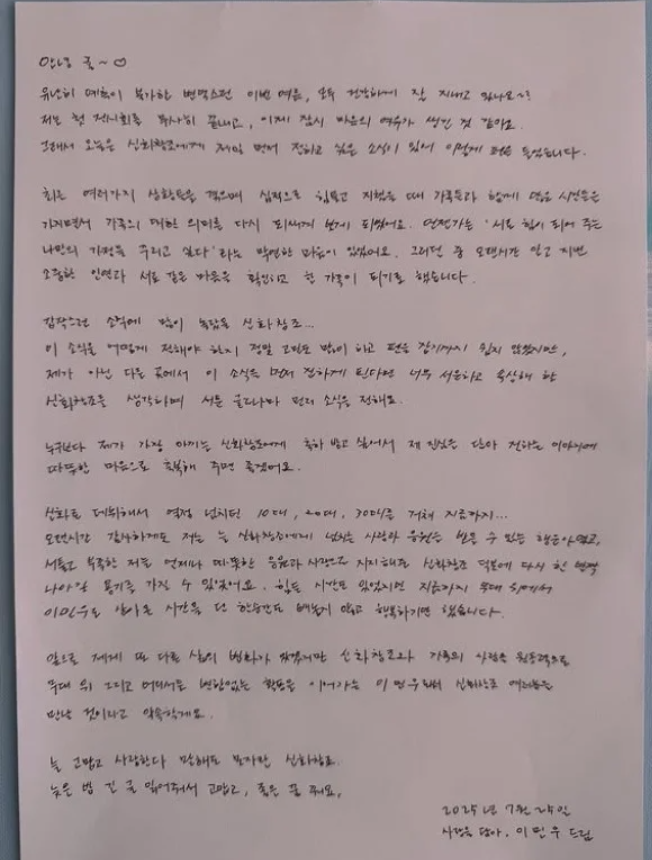 안녕 귤~♡
유난히 예측이 불가한 변덕스런 이번 여름, 모두 건강하게 잘 지내고 있나요~?
저는 첫 전시회를 무사히 끝내고, 이제 잠시 마음의 여유가 생긴 것 같아요.
그래서 오늘은 신화창조에게 제일 먼저 전하고 싶은 소식이 있어 이렇게 펜을 들었습니다.
최근 여러가지 상황들을 겪으며 심적으로 힘들고 지쳤을 때 가족들과 함께 많은 시간들을
가지면서 가족의 대한 의미를 다시 되새겨 보게 되었어요. 언젠가는 '서로 힘이 되어 주는
나만의 가정을 꾸리고 싶다'라는 막연한 마음이 있었어요. 그러던 중 오랜시간 알고 지낸
소중한 인연과 서로 같은 마음을 확인하고 한 가족이 되기로 했습니다.
갑작스런 소식에 많이 놀랐을 신화창조...
이 소식을 어떻게 전해야 할지 정말 고민도 많이 하고 펜을 잡기까지 쉽지 않았지만,
제가 아닌 다른 곳에서 이 소식을 먼저 접하게 된다면 너무 서운하고 속상해 할
신화창조를 생각하며 서툰 글이나마 먼저 소식을 전해요.
누구보다 제가 가장 아끼는 신화창조에게 축하 받고 싶어서 제 진심을 담아 전하는 이야기에
따뜻한 마음으로 축복해 주면 좋겠어요.
신화로 데뷔해서 열정 넘치던 10대, 20대, 30대를 거쳐 지금까지...
오랜시간 감사하게도 저는 늘 신화창조에게 넘치는 사랑과 응원을 받을 수 있는 행운아였고,
서툴고 부족한 저를 언제나 따뜻한 응원과 사랑으로 지지해준 신화창조 덕분에 다시 한 번 더
나아갈 용기를 가질 수 있었어요. 힘든 시간도 있었지만 지금까지 무대 위에서
이민우로 살아온 시간을 단 한순간도 빼놓지 않고 행복하기만 했습니다.
앞으로 제게 또 다른 삶의 변화가 있겠지만 신화창조와 가족의 사랑을 원동력으로
무대 위 그리고 어디서든 변함없는 활동을 이어가는 이민우로 신화창조 여러분을
만날 것이라고 약속할게요.
늘 고맙고 사랑한다 말해도 모자란 신화창조.
늦은 밤 긴 글 읽어줘서 고맙고, 좋은 꿈 꿔요.
2025년 7월 25일
사랑을 담아. 이민우 드림